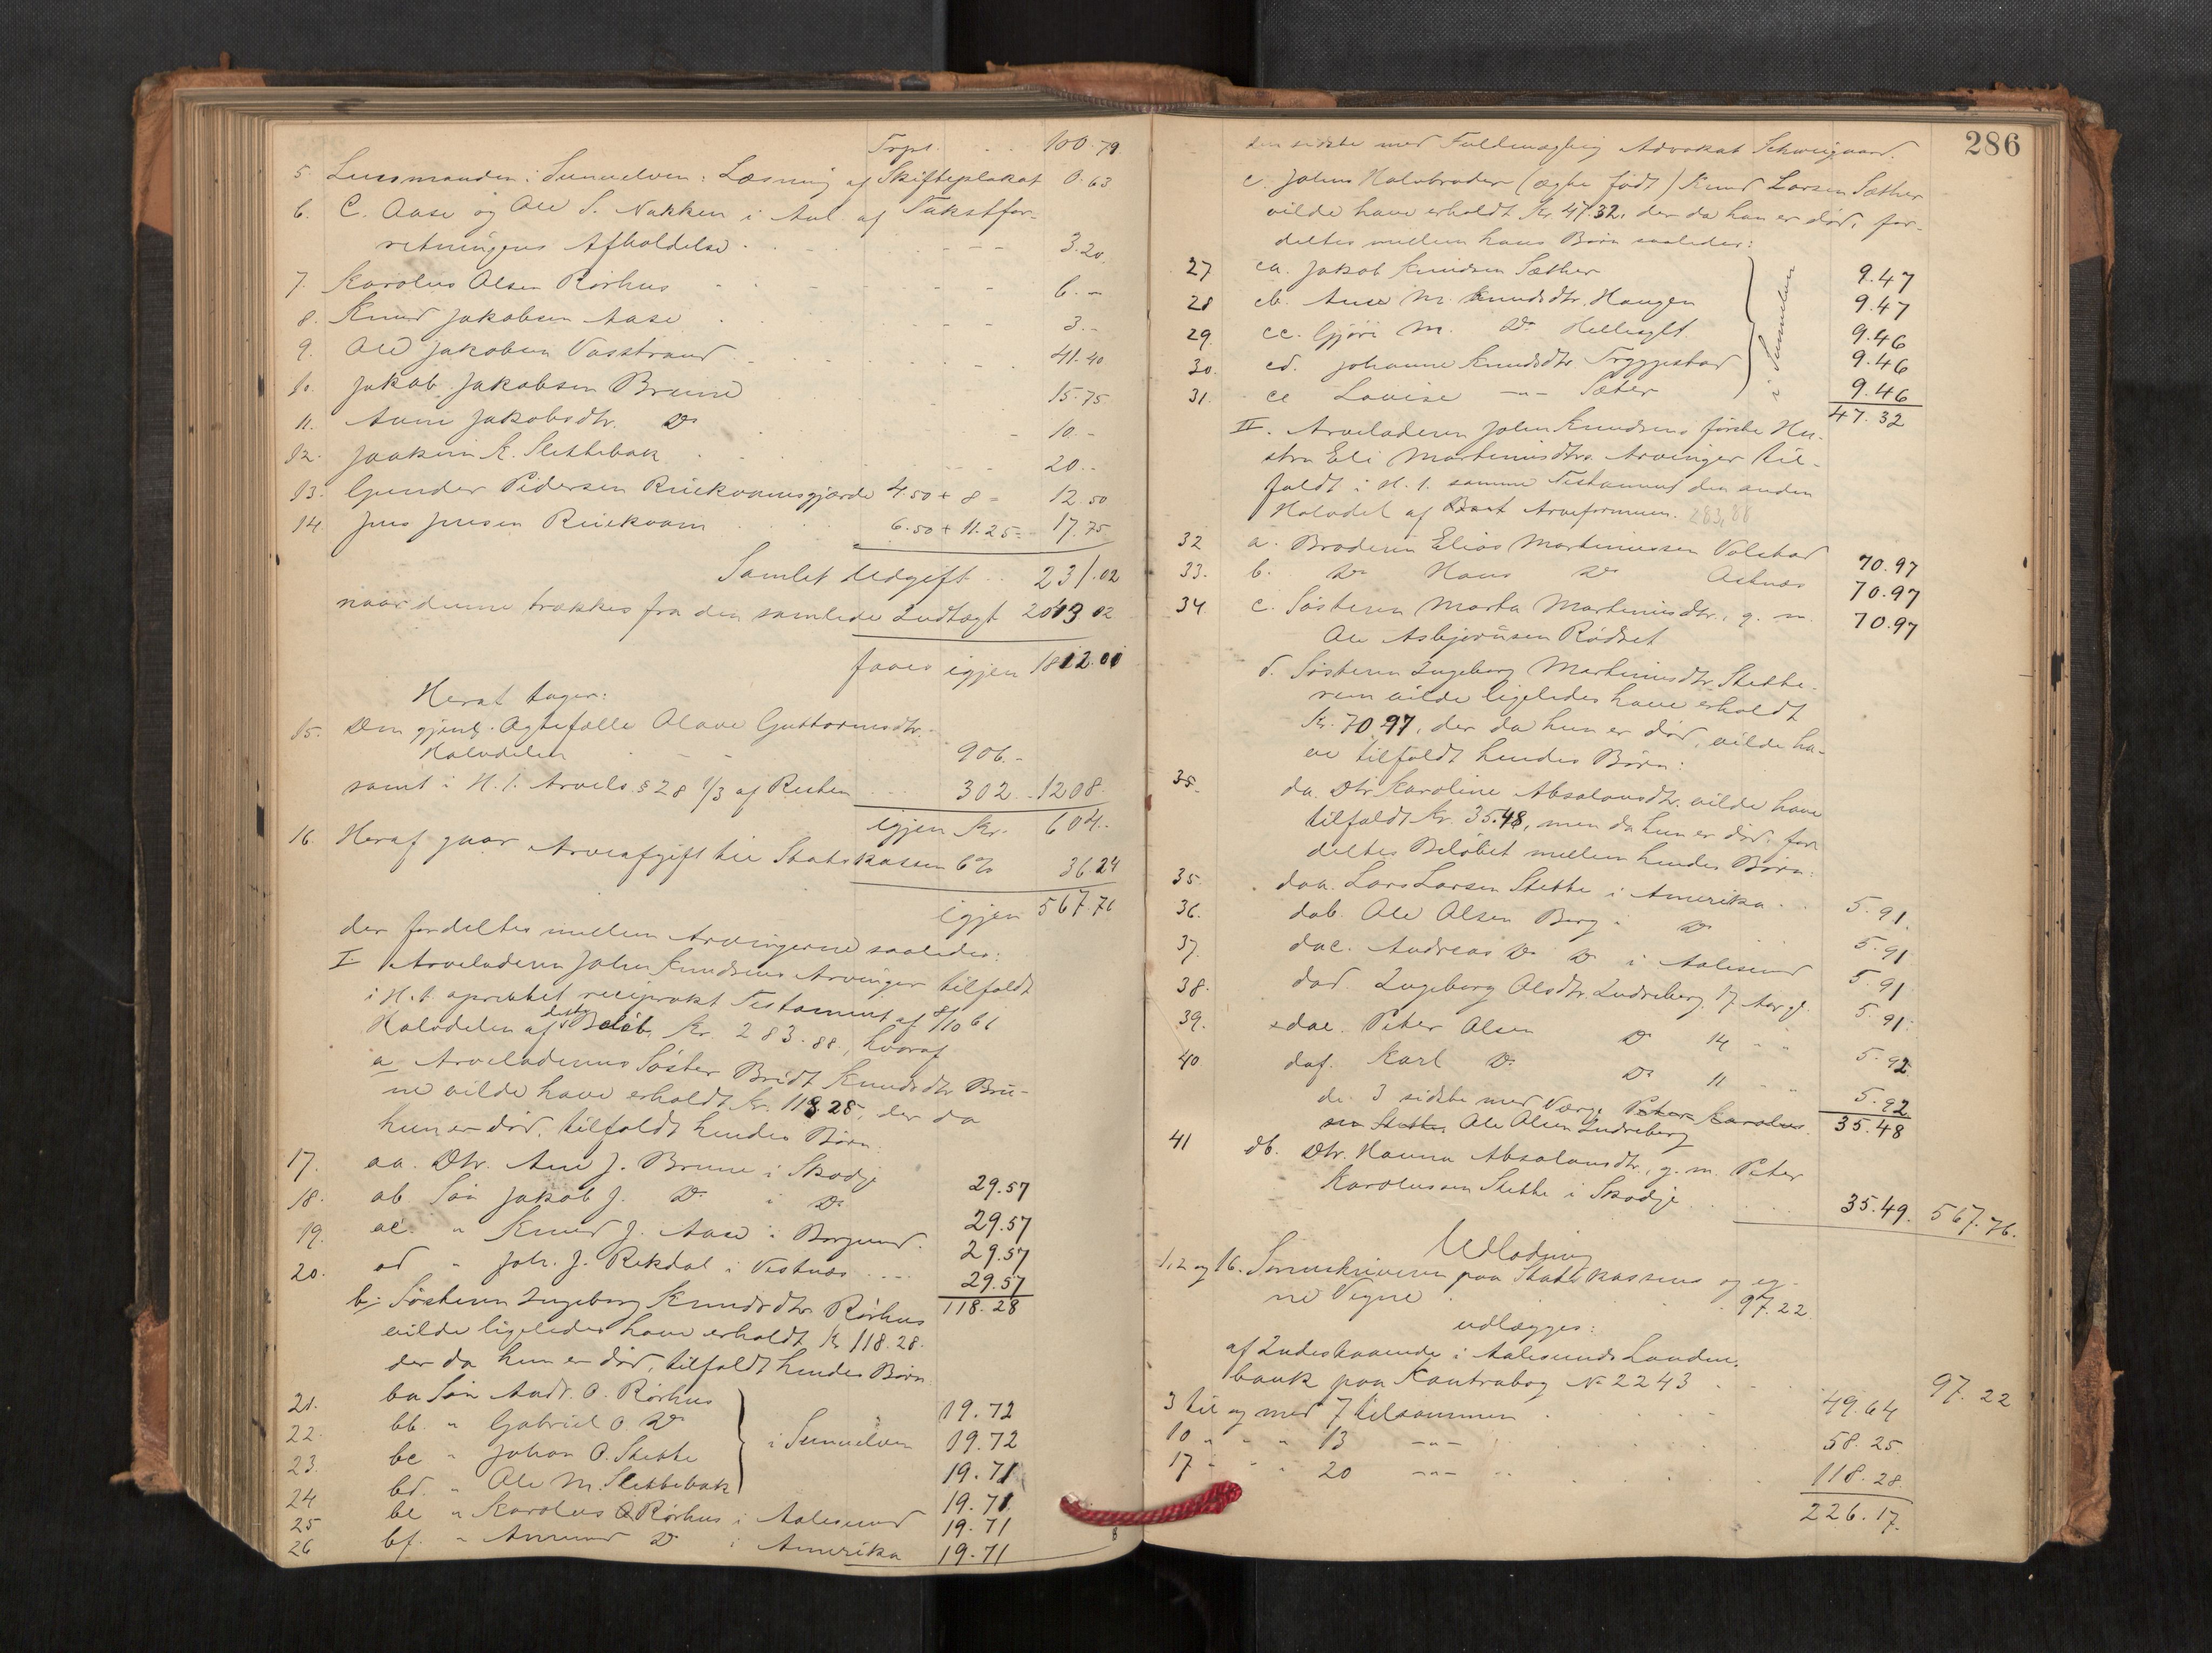 Trpt. 100.79
5. Lensmanden i Sunnelven: Læsning af Skifteplakat 0.63
6. C. Aase og Ole S. Nakken i Anl. af Takstfor-
retningens Afholdelse 3.20.
7. Karolus Olsen Rørhus 6.-
8. Knud Jakobsen Aase 3.-
9. Ole Jakobsen Vasstrand 41.40
10. Jakob Jakobsen Brune 15.75
11. Anne Jakobsdtr. Do 10.-
12. Joakim K. Slettebak 20.-
13. Gunder Pedersen Ruekvamsgjærde 4.50 + 8 = 12.50
14. Jens Jensen Ruekvam 6.50 + 11.25 = 17.75
Samlet Udgift 231.02
naar denne trækkes fra den samlede Indtægt 2043.02
faaes igjen 1812.00
Heraf tager:
15. Den gjenl. Ægtefælle Olave Guttormsdtr.
Halvdelen 906.-
samt i H. t. Arvels. § 28 1/3 af Resten 302 1208.
igjen Kr. 604.-
16. Heraf gaar Arveafgift til Statskassen 6% 36.24
igjen 567.76
der fordeltes mellem Arvingerne saaledes:
I. Arveladeren John Knudsens Arvinger tilfaldt
i H. t. oprettet reciprokt Testament af 8/10 61
Halvdelen af dette Beløb, Kr. 283.88, hvoraf
a. Arveladerens Søster Bridt Knudsdtr Bru-
ne vilde have erholdt Kr. 118.28, der da
hun er død, tilfaldt hendes Børn:
17. aa. Dtr. Ane J. Brune i Skodje 29.57
18. ab. Søn Jakob J. Do i Do 29.57
19. ac. " Knud J. Aase i Borgund 29.57
20. ad " Joh. J. Rekdal i Vestnæs 29.57
118.28
b. Søsteren Ingeborg Knudsdtr Rørhus
vilde ligeledes have erholdt Kr 118.28.
der da hun er død, tilfaldt hendes Børn.
21. ba Søn Andr. O. Rørhus 19.72
22. bb. " Gabriel O Do i Sunnelven 19.72
23. bc " Johan O. Stette 19.71
24 bd. " Ole M. Slettebak 19.71
25 be " Karolus O Rørhus i Aalesund 19.71
26 bf. " Amund Do i Amerika 19.71
286
den sidste med Fuldmægtig Advokat Schweigaard.
c. Johns Halvbroder (ægte født) Knud Larsen Sæther
vilde have erholdt Kr. 47.32, der da han er død, for-
deltes mellem hans Børn saaledes:
27 ca. Jakob Knudsen Sæther 9.47
28 cb. Anne M. Knudsdtr. Haugen 9.47
29. cc. Gjøri M. Do Hellesylt 9.46
30. cd. Johanne Knudsdtr Tryggestad 9.46
31. ce Lovise -"- Sæter 9.46
i Sunnelven
47.32
II. Arveladeren John Knudsens første Hu-
stru Eli Martinusdtrs Arvinger til-
faldt i H. t. samme Testament den anden
Halvdel af Boets Arveformue. 283,88
32 a. Broderen Elias Martinussen Valstad 70.97
33. b. Do Hans Do Østnæs 70.97
34. c. Søsteren Marta Martinusdtr., g. m. 70.97
Ole Asbjørnsen Rødset
d. Søsteren Ingeborg Martinusdtr. Stette.
som vilde ligeledes have erholdt
Kr. 70.97, der da hun er død, vilde ha-
ve tilfaldt hendes Børn:
35. da. Dtr Karoline Absalonsdtr. vilde have
tilfaldt Kr. 35.48, men da hun er død, for
deltes Beløbet mellem hendes Børn:
35. daa. Lars Larsen Stette i Amerika 5.91.
36. dab. Ole Olsen Berg i Do 5.91
37. dac. Andreas Do Do i Aalesund 5.91
38. dad. Ingeborg Olsdtr. Indreberg 17 Aar gl. 5.91.
39. dae. Peter Olsen Do 14 " " 5.92
40 daf. Karl Do Do 11 " " 5.92
de 3 sidste med Værge Peter Karolus- 35.48
sen Stette, Ole Olsen Indreberg
41 db. Dtr. Hanna Absalonsdtr., g. m. Peter
Karolussen Stette i Skodje 35.49. 567.76.
Udlodning
1, 2 og 16. Sorenskriveren paa Statskassens og eg-
ne Vegne 97.22
udlægges:
af Indestaaende i Aalesunds Landm.
bank paa Kontrabog No 2243 97.22
3 til og med 7 tilsammen 49.64
10 " " " 13 -"- 58.25.
17 " " " 20 -"- 118.28.
226.17.